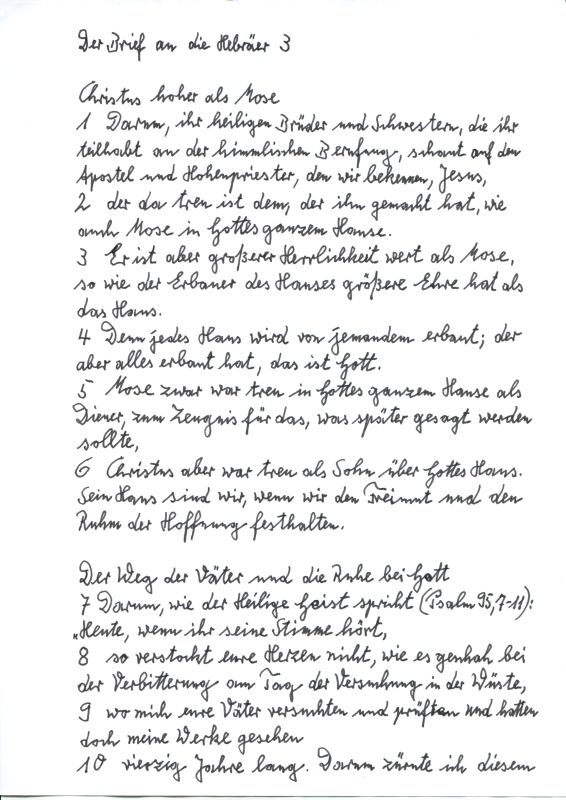 Der Brief an die Hebräer 3
Christus hoher als Mose
1 Darum, ihr heiligen Brüder und Schwestern, die ihr
teilhabt an der himmlischen Berufung, schaut auf den
Apostel und Hohenpriester, den wir bekennen, Jesus,
2 der da treu ist dem, der ihn gemacht hat, wie
auch Mose in Gottes ganzem Hause.
3 Er ist aber größerer Herrlichkeit wert als Mose,
so wie der Erbauer des Hauses größere Ehre hat als
das Haus.
4 Denn jedes Haus wird von jemandem erbaut; der
aber alles erbaut hat, das ist Gott.
5 Mose zwar war treu in Gottes ganzem Hause als
Diener, zum Zeugnis für das, was später gesagt werden
sollte,
6 Christus aber war treu als Sohn über Gottes Haus.
Sein Haus sind wir, wenn wir den Freimut und den
Ruhm der Hoffnung festhalten.
Der Weg der Väter und die Ruhe bei Gott
7 Darum, wie der Heilige Geist spricht (Psalm 95,7-11):
„Heute, wenn ihr seine Stimme hört,
8 so verstockt eure Herzen nicht, wie es geschah bei
der Verbitterung am Tag der Versuchung in der Wüste,
9 wo mich eure Väter versuchten und prüften und hatten
doch meine Werke gesehen
10 vierzig Jahre lang. Darum zürnte ich diesem